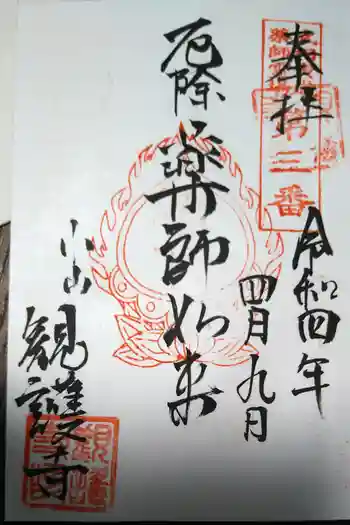 奉拝
第三番
令和四年
四月九月
厄除薬師如来
小山
観護寺